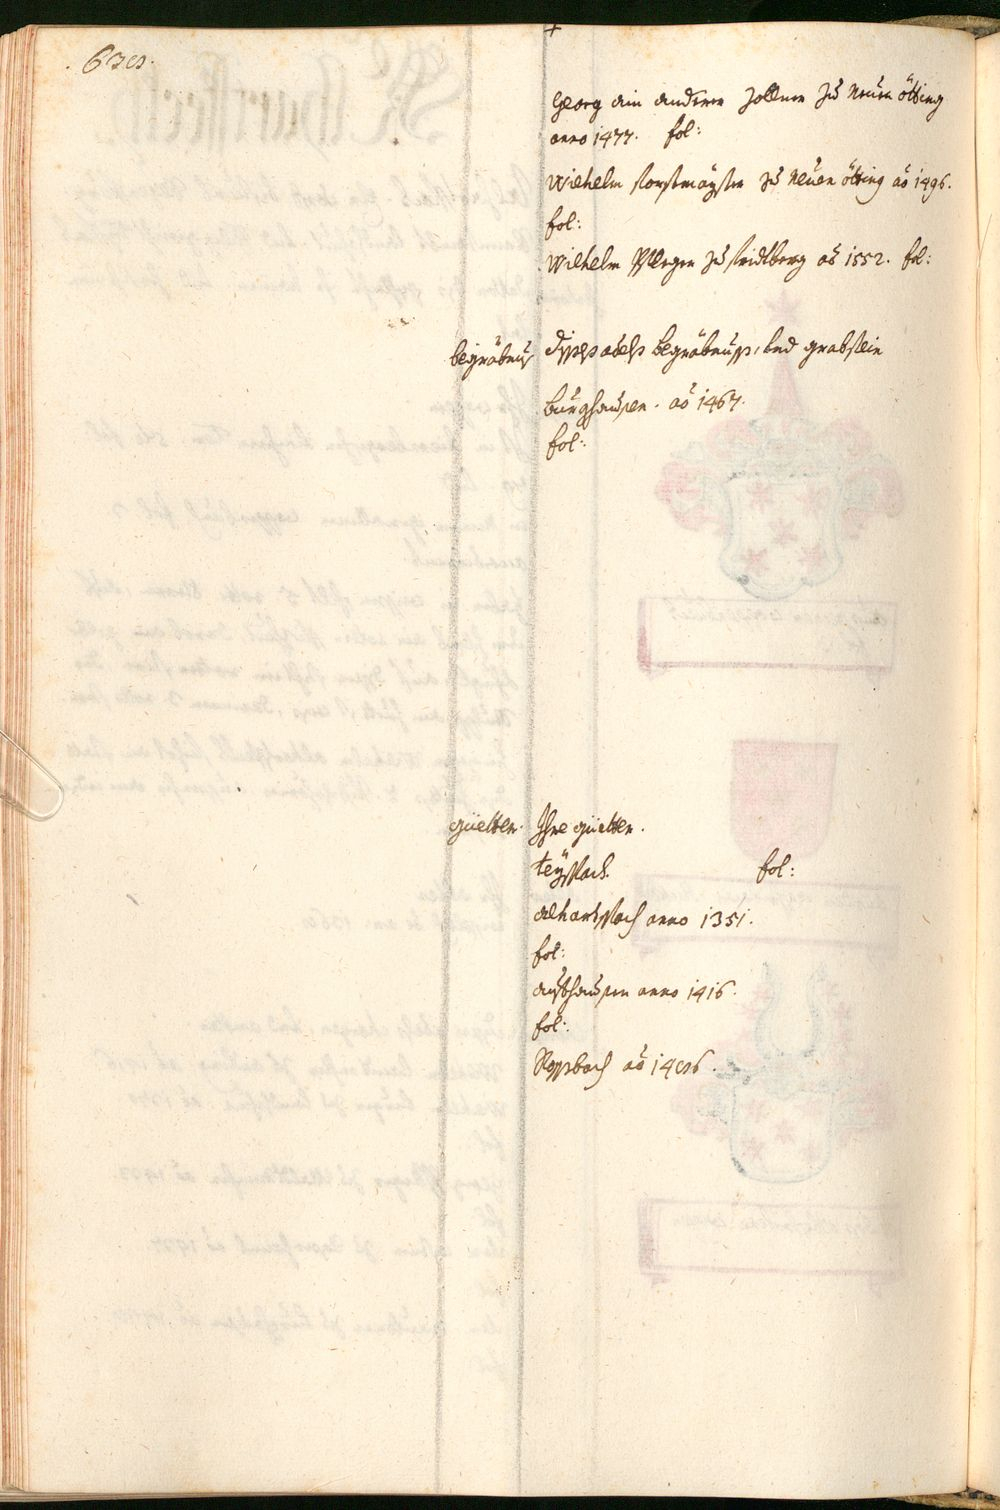 Georg ain anderer zollner zu Neuen ötting
anno 1477. fol:
Wilhelm forstmayster zu Neuen ötting aō 1496.
fol:
Wilhelm Pfleger zu fridtberg aō 1552. fol:
begräbnus dises adels begräbnuss, und grabstein
burghausen. aō 1467.
fol:
güetter. Ihre güetter.
teyspach. fol:
anno 1351.
fol:
anno 1416.
fol:
Rospach aō